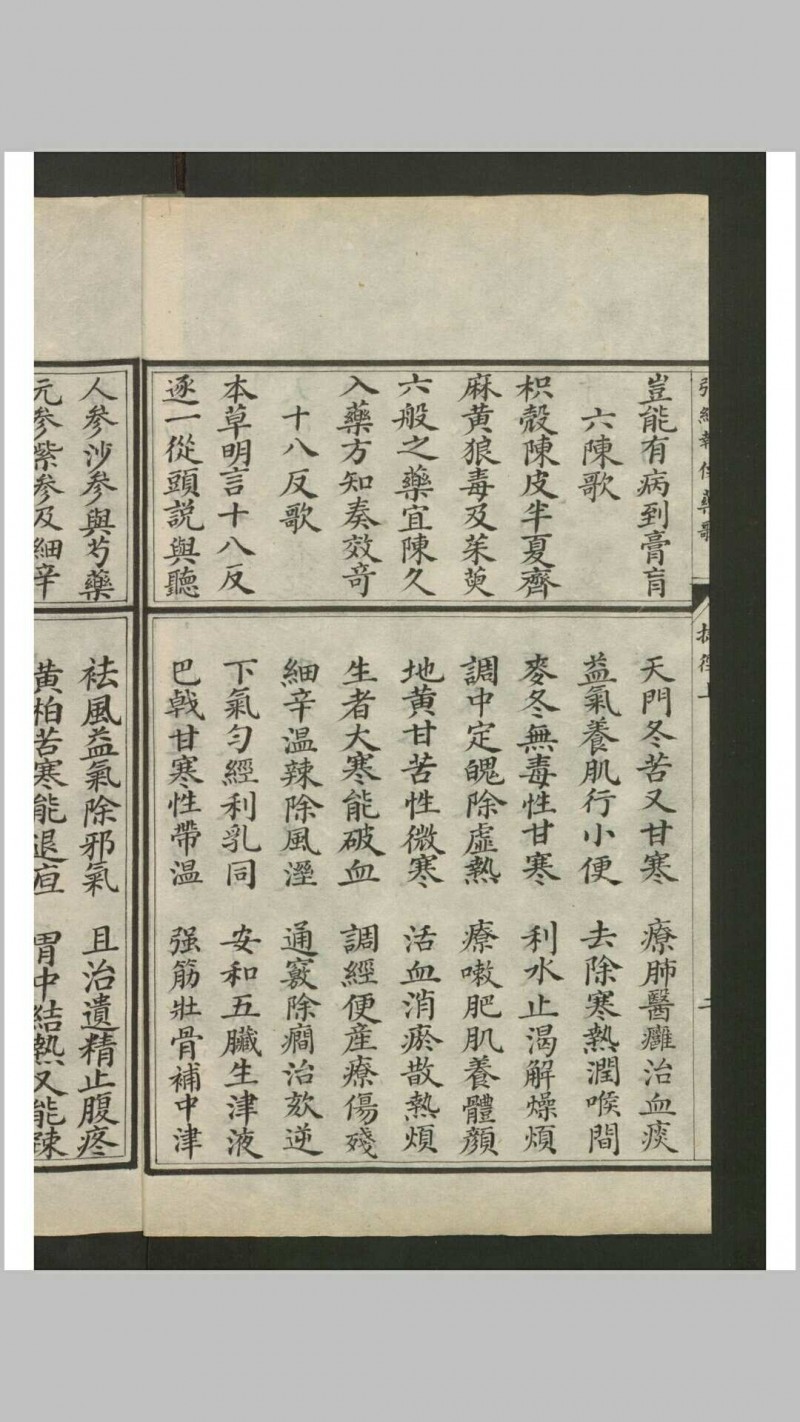 豈能有病到膏肓
六陳歌
枳殼陳皮半夏齊
麻黃狼毒及茱萸
六般之藥宜陳久
入藥方知奏效奇
十八反歌
本草明言十八反
逐一從頭説與聽
人參沙參與芍藥
元參紫參及細辛
天門冬苦又甘寒 療肺醫癰治血痰
益氣養肌行小便 去除寒熱潤喉間
麥冬無毒性甘寒 利水止渴解燥煩
調中定魄除虛熱 療嗽肥肌養體顏
地黃甘苦性微寒 活血消瘀散熱煩
生者大寒能破血 調經便産療傷殘
細辛温辣除風溼 通竅除癇治欬逆
下氣勻經利乳同 安和五臟生津液
巴戟甘寒性帶温 强筋壯骨補中津
袪風益氣除邪氣 且治遺精止腹疼
黃柏苦寒能退疸 胃中結熱又能